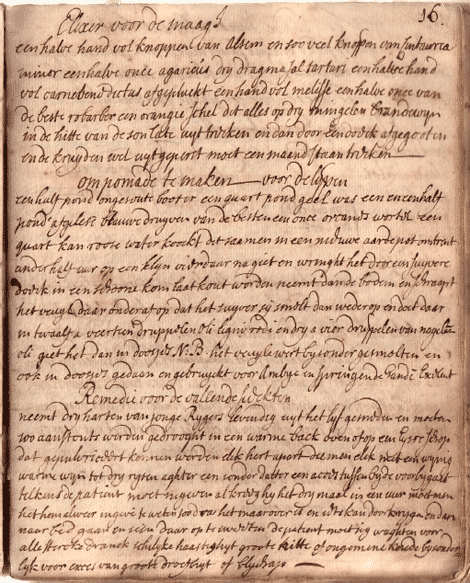 16.
Elixer voor de maagh
een halve hand vol knoppen van Alsem en soo veel knoppen van Centaurea
minor een halve once agaricus dry dragma sal tartari een halve hand
vol carnebenedictus afgepluckt een hand vol melisse een halve once van
de beste robarber een orangie schel dit alles op dry mingelen brandewyn
in de hitte van de son late uyt trecken en dan door een doeck afgegooten
en de kruyden wel uytgeperst moet een maand staan trecken
om pomade te maken voor de lippen
een half pond ongesoute booter een quart pond geel was een en een half
pond afgelese blauwe druyven van de besten een once orcanes wortel een
quart kan roose water koockt dit saamen in een nieuwe aarde pot omtrent
anderhalf uur op een klyn vier daar na giet en wringht het door een suyvere
doeck in een schoone kom laat kout worden neemt dan de bodem en schraapt
het veuyle daar onder af op dat het suyver sy smelt dan weder op en doet daar
in twaalf a veertien druppelen oli ligni rodi en dry a vier druppelen van nagelen
oli giet het dan in doosjes N.B. het veuyle wert bysonder gesmolten en
ook in doosjes gedaan en gebruyckt voor Ambye en springende handen Excelent
Remedie voor de vallende siekten
neemt dry harten van jonge Rygers levendig uyt het lyf gesneden en moeten
soo aanstonts werden gedrooght in een warme back oven of op een Eyser schop
dat gepulveriseert konnen werden elk hert apart die men elk met een weynig
warme wyn tot dry rysen aghter een sonder datter een acces tussen byde voorbygaet
telkens de patient moet ingeven al kreegh hy het dry maal in een uur moet men
het hem alweer ingeve
naar bed gaan en seer daar op sweeten de patient moet sig waghten voor
alle stercke dranck schielyke haastigheyt groote hitte of ongemeene koude bysonder
lyk voor exces van groote droefheyt of blydtschap